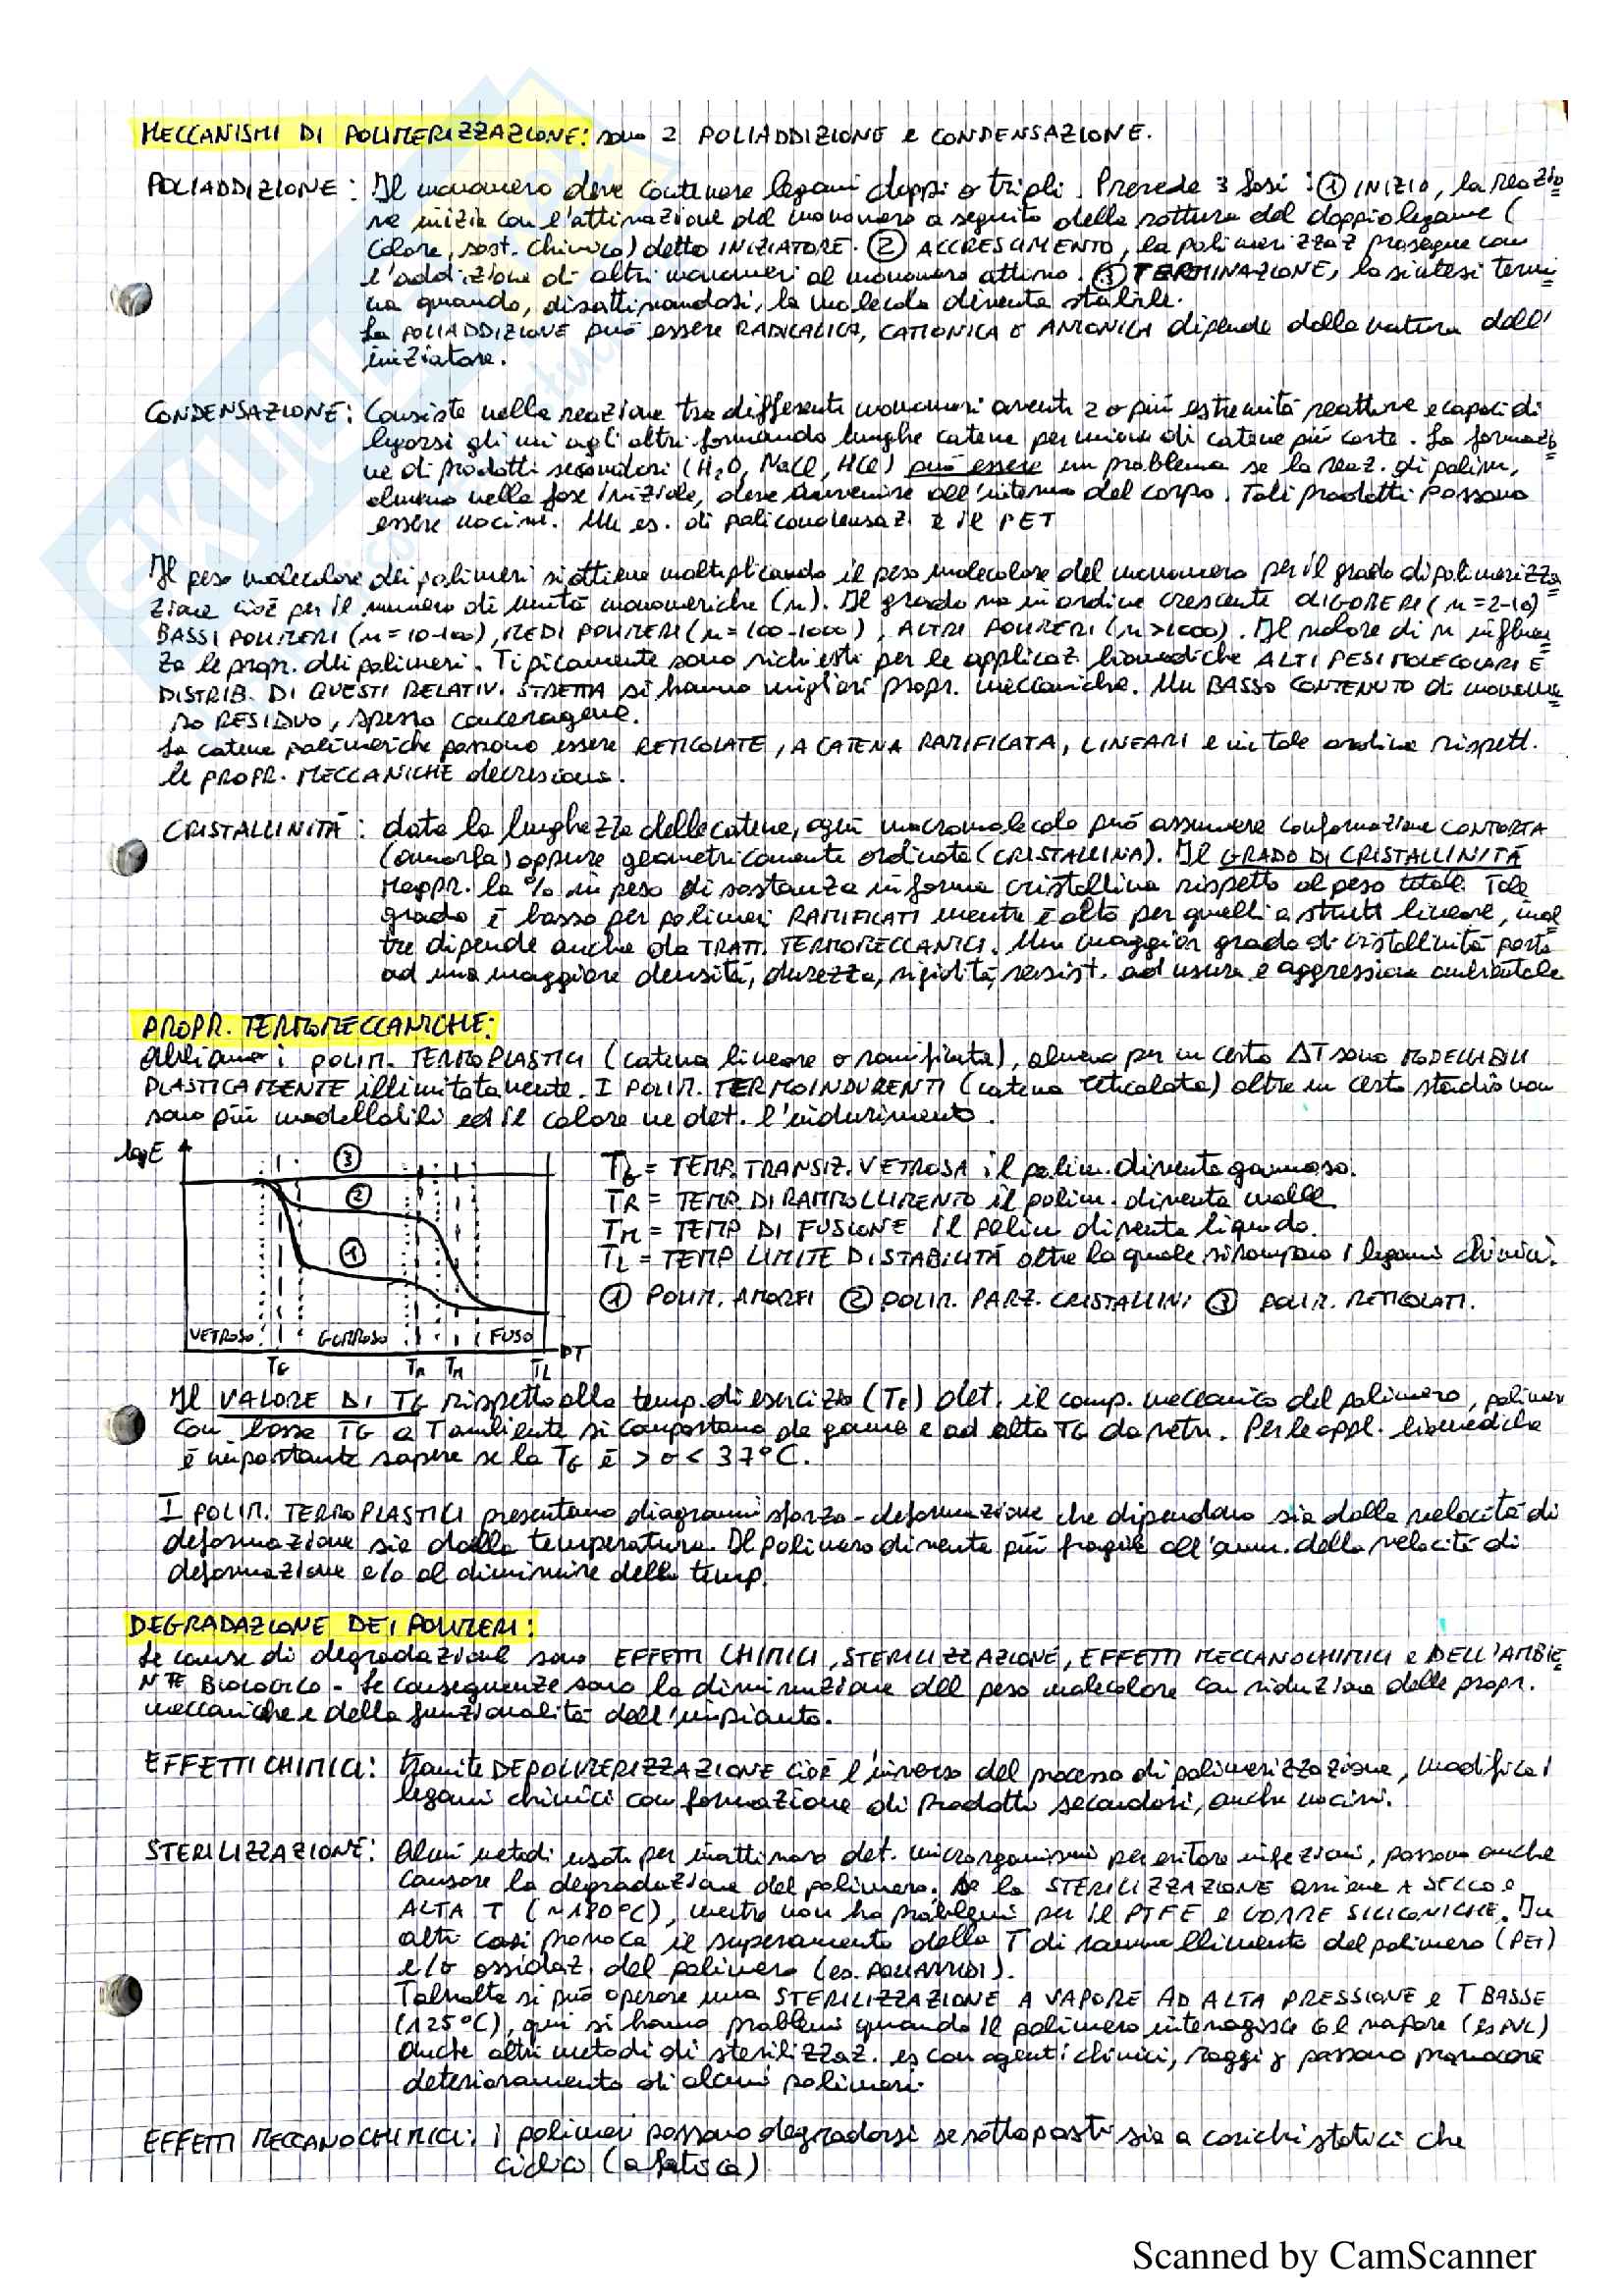 MECCANISMI DI POLIMERIZZAZIONE: sono 2 POLIADDIZIONE e CONDENSAZIONE.
POLIADDIZIONE: Il monomero deve contenere legami doppi o tripli. Prevede 3 fasi: ① INIZIO, la reazio
ne inizia con l'attivazione del monomero a seguito della rottura del doppio legame (
calore, sost. chimica) detto INIZIATORE. ② ACCRESCIMENTO, la polimerizzaz prosegue con
l'addizione di altri monomeri al monomero attivo. ③ TERMINAZIONE, la sintesi termi
na quando, disattivandosi, la molecola diventa stabile.
La POLIADDIZIONE può essere RADICALICA, CATIONICA O ANIONICA dipende dalla natura dell'
iniziatore.
CONDENSAZIONE: Consiste nella reazione tra differenti monomeri aventi 2 o più estremità reattive e capaci di
legarsi gli uni agli altri formando lunghe catene per unione di catene più corte. La formazio
ne di prodotti secondari (H₂O, NaCl, HCl) può essere un problema se la reaz. di polim,
almeno nella fase iniziale, deve avvenire all'interno del corpo. Tali prodotti possono
essere nocivi. Un es. di policondensaz. è il PET
Il peso molecolare dei polimeri si ottiene moltiplicando il peso molecolare del monomero per il grado di polimerizza
zione cioè per il numero di unità monomeriche (n). Il grado va in ordine crescente OLIGOMERI (n=2-10)
BASSI POLIMERI (n=10-100), MEDI POLIMERI (n=100-1000), ALTRI POLIMERI (n>1000). Il valore di n influen
za le propr. dei polimeri. Tipicamente sono richiesti per le applicaz biomediche ALTI PESI MOLECOLARI E
DISTRIB. DI QUESTI RELATIV. STRETTA si hanno migliori propr. meccaniche. Un BASSO CONTENUTO di monome
ro RESIDUO, spesso cancerogeno.
Le catene polimeriche possono essere RETICOLATE, A CATENA RAMIFICATA, LINEARI e in tale ordine rispett.
le PROPR. MECCANICHE decrescono.
CRISTALLINITÀ: data la lunghezza delle catene, ogni macromolecola può assumere conformazione CONTORTA
(amorfa) oppure geometricamente ordinata (CRISTALLINA). Il GRADO DI CRISTALLINITÀ
rappr. la % in peso di sostanza in forma cristallina rispetto al peso totale. Tale
grado è basso per polimeri RAMIFICATI mentre è alto per quelli a strutt lineare, inol
tre dipende anche da TRATT. TERMOMECCANICI. Un maggior grado di cristallinità porta
ad una maggiore densità, durezza, rigidità, resist. ad usura e aggressione ambientale
PROPR. TERMOMECCANICHE:
Abbiamo i POLIM. TERMOPLASTICI (catena lineare o ramificata), almeno per un certo ΔT sono MODELLABILI
PLASTICAMENTE illimitatamente. I POLIM. TERMOINDURENTI (catena reticolata) oltre un certo stadio non
sono più modellabili ed il calore ne det. l'indurimento.
logE
③
②
①
VETROSO
GOMMOSO
FUSO
TG TR TM TL DT
TG = TEMP. TRANSIZ. VETROSA il polim. diventa gommoso.
TR = TEMP. DI RAMMOLLIMENTO il polim. diventa molle
TM = TEMP DI FUSIONE il polim diventa liquido.
TL = TEMP LIMITE DI STABILITÀ oltre la quale si rompono i legami chimici.
① POLIM. AMORFI ② POLIM. PARZ. CRISTALLINI ③ POLIM. RETICOLATI.
Il VALORE DI TG rispetto alla temp. di esercizio (TE) det. il comp. meccanico del polimero, polimeri
con bassa TG a T ambiente si comportano da gomme e ad alta TG da vetri. Per le appl. biomediche
è importante sapere se la TG è > o < 37°C.
I POLIM. TERMOPLASTICI presentano diagrammi sforzo-deformazione che dipendono sia dalla velocità di
deformazione sia dalla temperatura. Il polimero diventa più fragile all'aum. della velocità di
deformazione e/o al diminuire della temp.
DEGRADAZIONE DEI POLIMERI:
Le cause di degradazione sono EFFETTI CHIMICI, STERILIZZAZIONE, EFFETTI MECCANOCHIMICI e DELL'AMBIE
NTE BIOLOGICO. Le conseguenze sono la diminuzione del peso molecolare con riduzione delle propr.
meccaniche e della funzionalità dell'impianto.
EFFETTI CHIMICI: tramite DEPOLIMERIZZAZIONE cioè l'inverso del processo di polimerizzazione, modifica i
legami chimici con formazione di prodotti secondari, anche nocivi.
STERILIZZAZIONE: Alcuni metodi usati per inattivare det. microrganismi per evitare infezioni, possono anche
causare la degradazione del polimero. Se la STERILIZZAZIONE avviene A SECCO e
ALTA T (~180°C), mentre non ho problemi per il PTFE e GOMME SILICONICHE. In
altri casi provoca il superamento della T di rammollimento del polimero (PET)
e/o ossidaz. del polimero (es. POLIAMMIDI).
Talvolta si può operare una STERILIZZAZIONE A VAPORE AD ALTA PRESSIONE e T BASSE
(125°C), qui si hanno problemi quando il polimero interagisce col vapore (es PVC)
Anche altri metodi di sterilizzaz. es con agenti chimici, raggi γ possono provocare
deterioramento di alcuni polimeri.
EFFETTI MECCANOCHIMICI: i polimeri possono degradarsi se sottoposti sia a carichi statici che
ciclici (a fatica)
Scanned by CamScanner